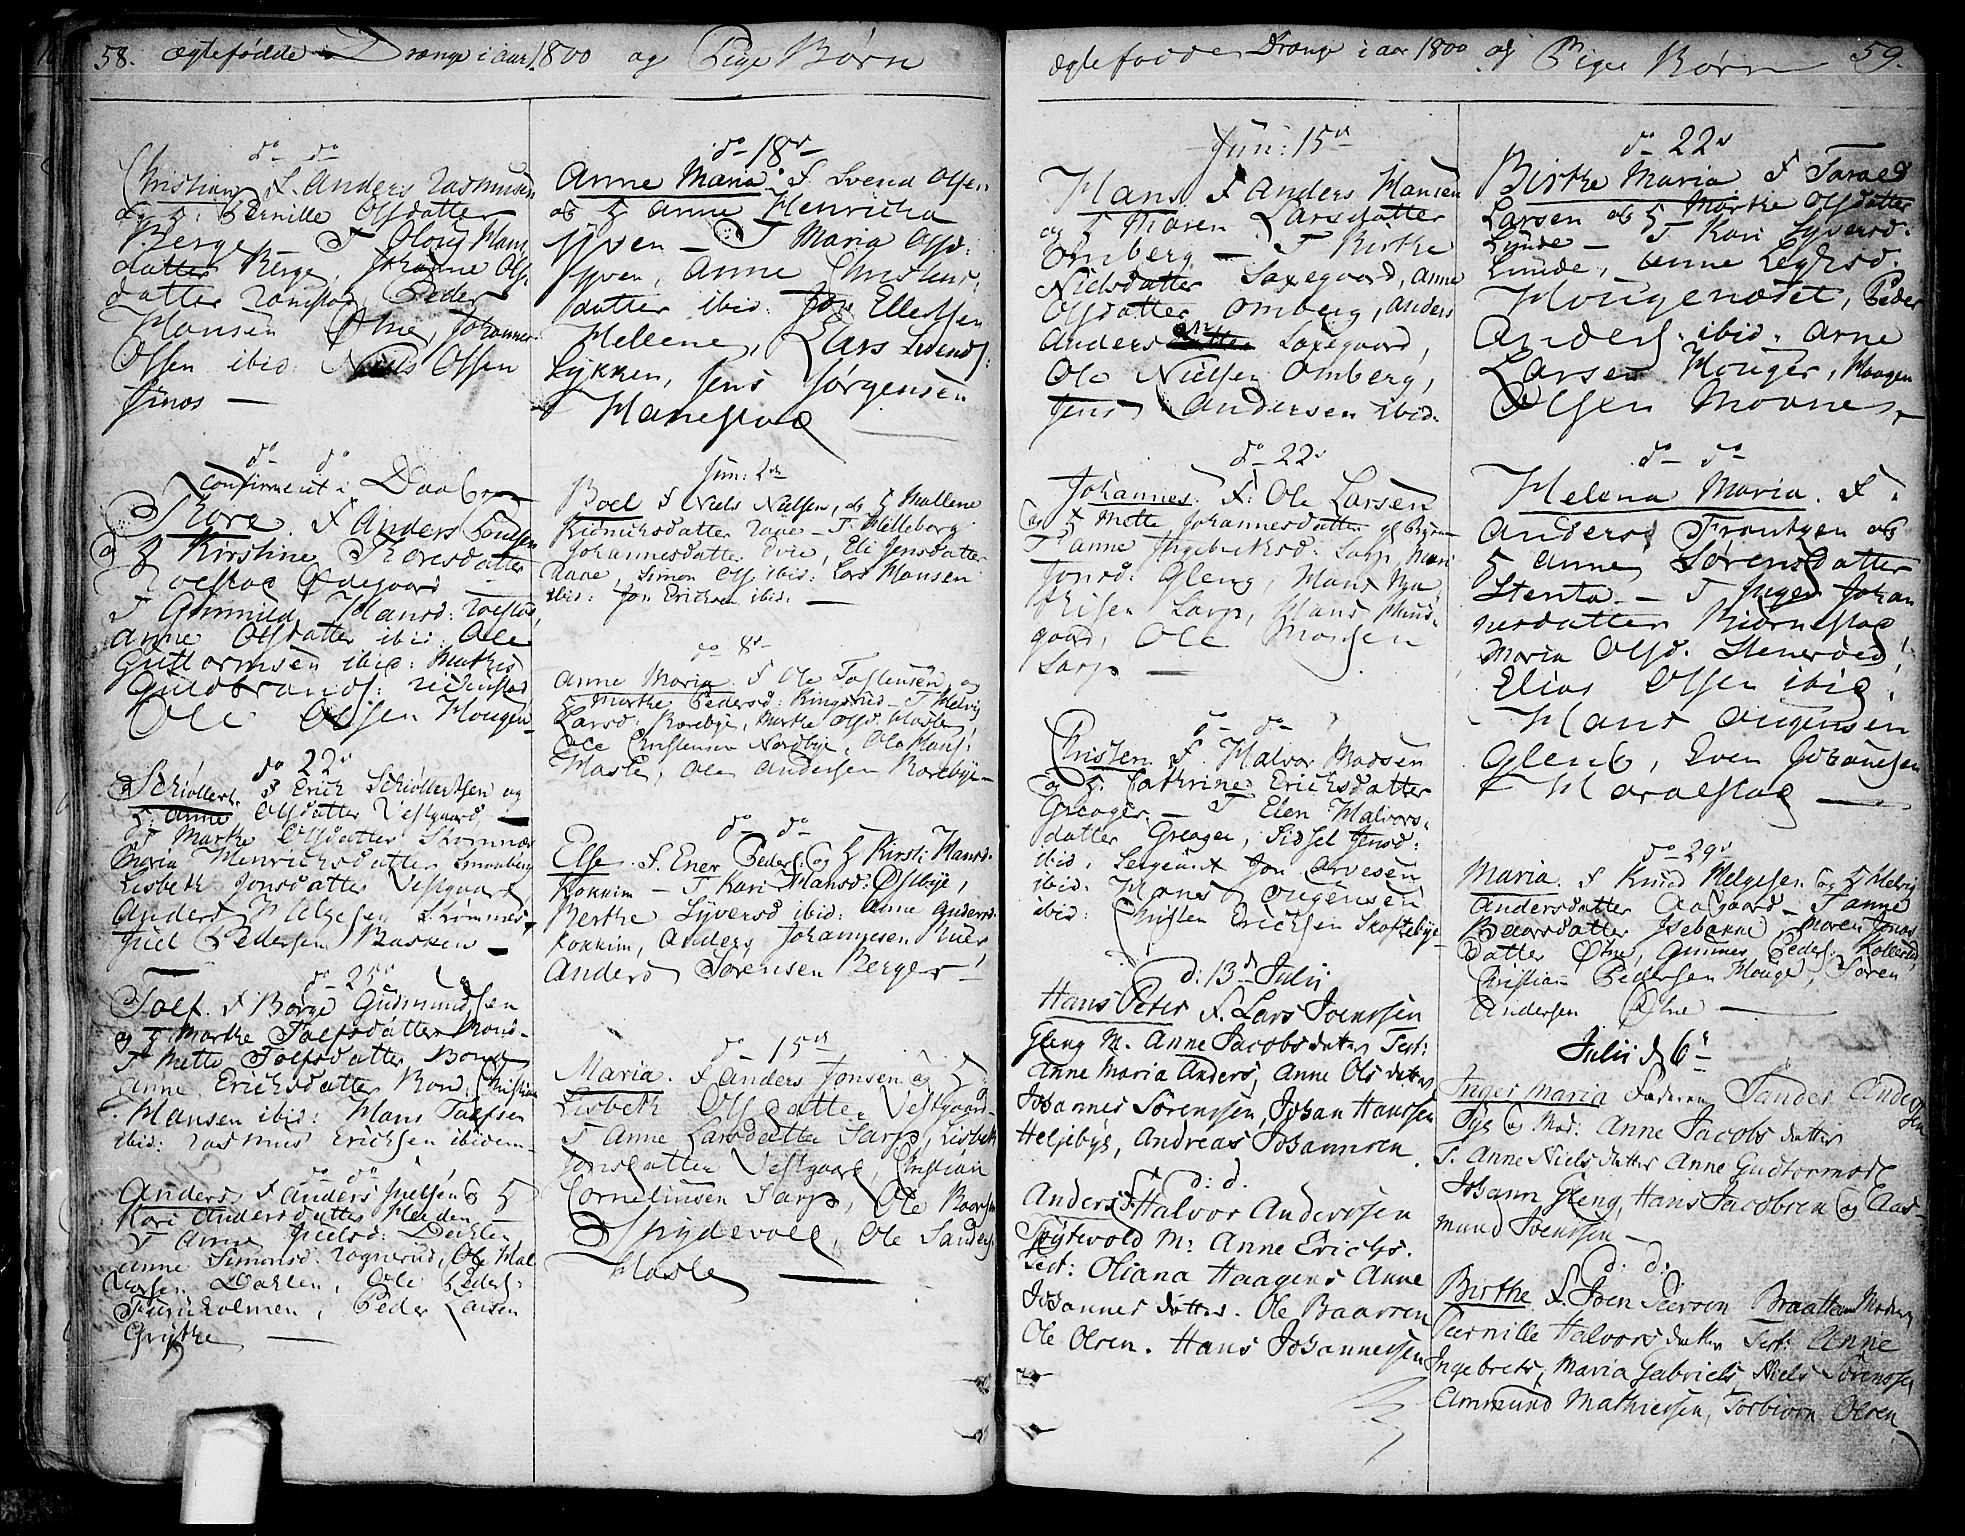 58. ægtefødde Drænge i aar 1800 og Pige Børn
do do
Christian F. Anders Rasmusen
og H: Pernille Olsdatter
Berge T Hans
datter Berge, Johanne Ols
datter Peder
Hansen Østne, Johannes
Olsen ibid: Niels Olsen
do do
confirmert i Daaben
Thore F Anders Poulsen
og H Kirstine Thoresdatter
Tolstad Ødegaard
T Gunnild Hansd: Tolstad
Anne Olsdatter ibid: Ole
Guttormsen ibid: Mathis
Guldbrands:
Ole Olsen Hougen
do 22d
Schiøllert. F Erich Schiøllertsen og
H: Anne Olsdatter Vestgaard
T Marthe Olsdatter Strømnæs
Maria Henrichsdatter
Lisbeth Jonsdatter Vestgaard
Anders Helgesen Strømnes,
Juel Pedersen Backen
do 25d
Tolf. F Børge Gudmundsen
og H Marthe Tolfsdatter Bond
T Mette Tolfsdatter Bond
Anne Erichsdatter Bond: Christian
Hansen ibid: Hans Tolfsen
ibid: Rasmus Erichsen ibidem
do do
Anders F Anders Juelsen og H
Kari Andersdatter Heeden
T Anne Juelsd: Dahlen
Anne Simonsd: Rognerud, Ole Hal
vorsen Dahlen, Ole Peders:
Furuholmen, Peder Larsen
Grythe
do 18d
Anne Maria F Svend Olsen
og H Anne Henricha
Hven T Maria Olsd:
Hven, Anne Christens:
datter ibid: Jon Ellefsen
Hellene, Lars Svends:
Lykken, Jens Jørgensen
Hanestad
Jun: 2d
Boel F Niels Nielsen, og H Mallene
Hendrichsdatter Raae T Hilleborg
Johannesdatter Evie, Eli Jensdatter
Raae, Simon Ols. ibid: Lars Hansen
ibid: Jon Erichsen ibid:
do 8d
Anne Maria F Ole Tostensen og
H Marthe Pedersd: Ringsrud T Helvig
Larsd: Borebye, Marthe Olsd: Hasle
Ole Christensen Nordbye, Ole Hans:
Hasle, Ole Andersen Borebye
do do
Else F. Ener Peders: og H Kirsti Hansd.
Kokkim T Kari Hansd: Østbye,
Berthe Syversd ibid: Anne Andersd.
Kokkim, Anders Johannesen Huer
Anders Sørensen Berger
do 15d
Maria. F Anders Jonsen og H:
Lisbeth Olsdatter Vestgaard
T Anne Larsdatter Sarp, Lisbeth
Jonsdatter Vestgaard, Christian
Corneliusen Sarp, Ole Baarsen
Spydevold, Ole Sanders:
Hasle
ægtefødde Drænge i aar 1800 og Pige Børn 59.
Jun: 15d
Hans F Anders Hansen
og H Maren Larsdatter
Omberg T Birthe
Nielsdatter Saxegaard, Anne
Olsdatter Omberg, Anders
Andersen Saxegaard,
Ole Nielsen Omberg,
Jens Andersen ibid.
do 22d
Johannes. F: Ole Larsen
og H Mette Johannesdatter
T Anne Ingebrethsd: Sarp, Mari
Jonsd: Gleng, Hans Ma
thisen Sarp, Hans Hund
gaard, Ole Monsen
Sarp
do do
Christen F. Halvor Madsen
og H: Cathrine Erichsdatter
Greager T Elen Halvors:
datter Greager, Sidsel Jensd:
ibid: Sergeant Jon Arvesen
ibid: Hans Ougensen
ibid: Christen Erichsen Skoftebye
d: 13d Julii
Hans Peter F. Lars Svensen
Gleng M. Anne Jacobsdatter Test:
Anne Maria Anders, Anne Olsdatter
Johannes Sørenssen, Johan Hanssen
Heljebye, Andreas Johannsen
d: d.
Anders F Halvor Andersen
Spytevold M: Anne Erichs.
Test: Oliana Haagens Anne
Johannesdatter. Ole Baarsen
Ole Olsen. Hans Johannessen
do 22d
Birthe Maria F Tarald
Larsen og H Marthe Olsdatter
Lunde T Kari Syversd.
Lunde, Anne
Hougenæset, Peder
Anders. ibid. Arne
Larsen Houger, Haagen
Olsen Moenes
do do
Helena Maria. F
Anders Frantzen og
H Anne Sørensdatter
Stenta T Inger Johan
nesdatter Biørnstad
Maria Olsd. Stenerød,
Elias Olsen ibid,
Hans Ougensen
Gleng, Even Johannesen
Haralstad
do 29d
Maria. F Knud Helgesen og H Helvig
Andersdatter Aagaard T Anne
Baarsdatter Isebakke, Maren Jons
datter Østne, Gunner Peders: Kollerud,
Christian Pedersen Houge, Søren
Andersen Østne
Julii d 6t
Inger Maria Faderen Sander Anders
sen
Tye og Mod: Anne Jacobsdatter
T. Anne Nielsdatter Anne Gudtormsd
Johan Gleng, Hans Jacobsen og Aas
mund Svenssen
d: d:
Birthe F. Joen Peersen Braatten Moderen
Pernille Halvorsdatter Test: Anne
Ingebrets, Maria Gabriels Niels Sørenssen
Ammund Mathiessen, Torbiørn Olsen